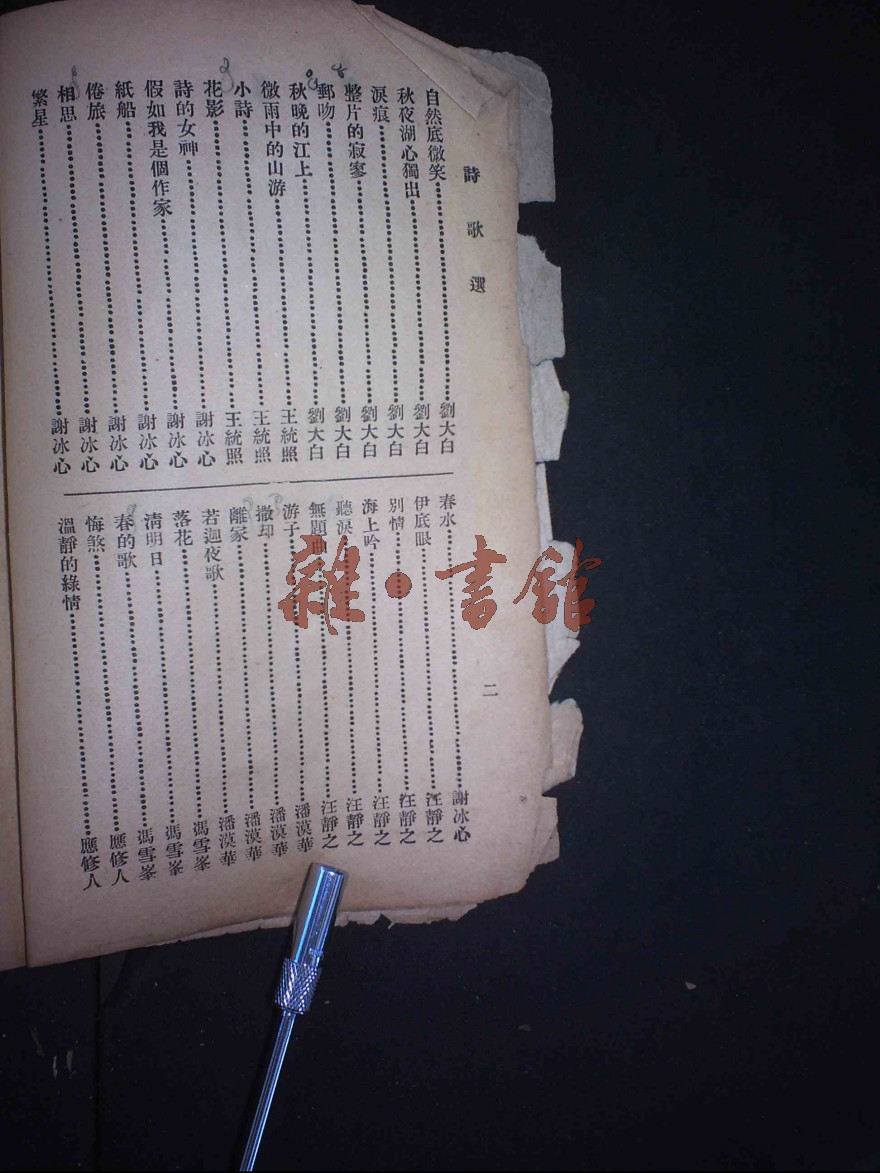 詩歌選
二
自然底微笑……劉大白
秋夜湖心獨出……劉大白
淚痕……劉大白
整片的寂寥……劉大白
郵吻……劉大白
秋晚的江上……劉大白
微雨中的山游……王統照
小詩……王統照
花影……王統照
詩的女神……謝冰心
假如我是個作家……謝冰心
紙船……謝冰心
倦旅……謝冰心
相思……謝冰心
繁星……謝冰心
春水……謝冰心
伊底眼……汪靜之
別情……汪靜之
海上吟……汪靜之
聽淚……汪靜之
無題曲……汪靜之
游子……潘漠華
撒却……潘漠華
離家……潘漠華
若迦夜歌……潘漠華
落花……馮雪峯
清明日……馮雪峯
春的歌……馮雪峯
悔煞……應修人
溫靜的綠情……應修人
雜·書館